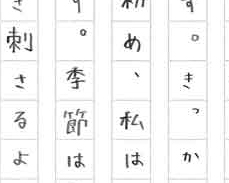 す。きっか
初め、私は
す。季節は
刺さるよ